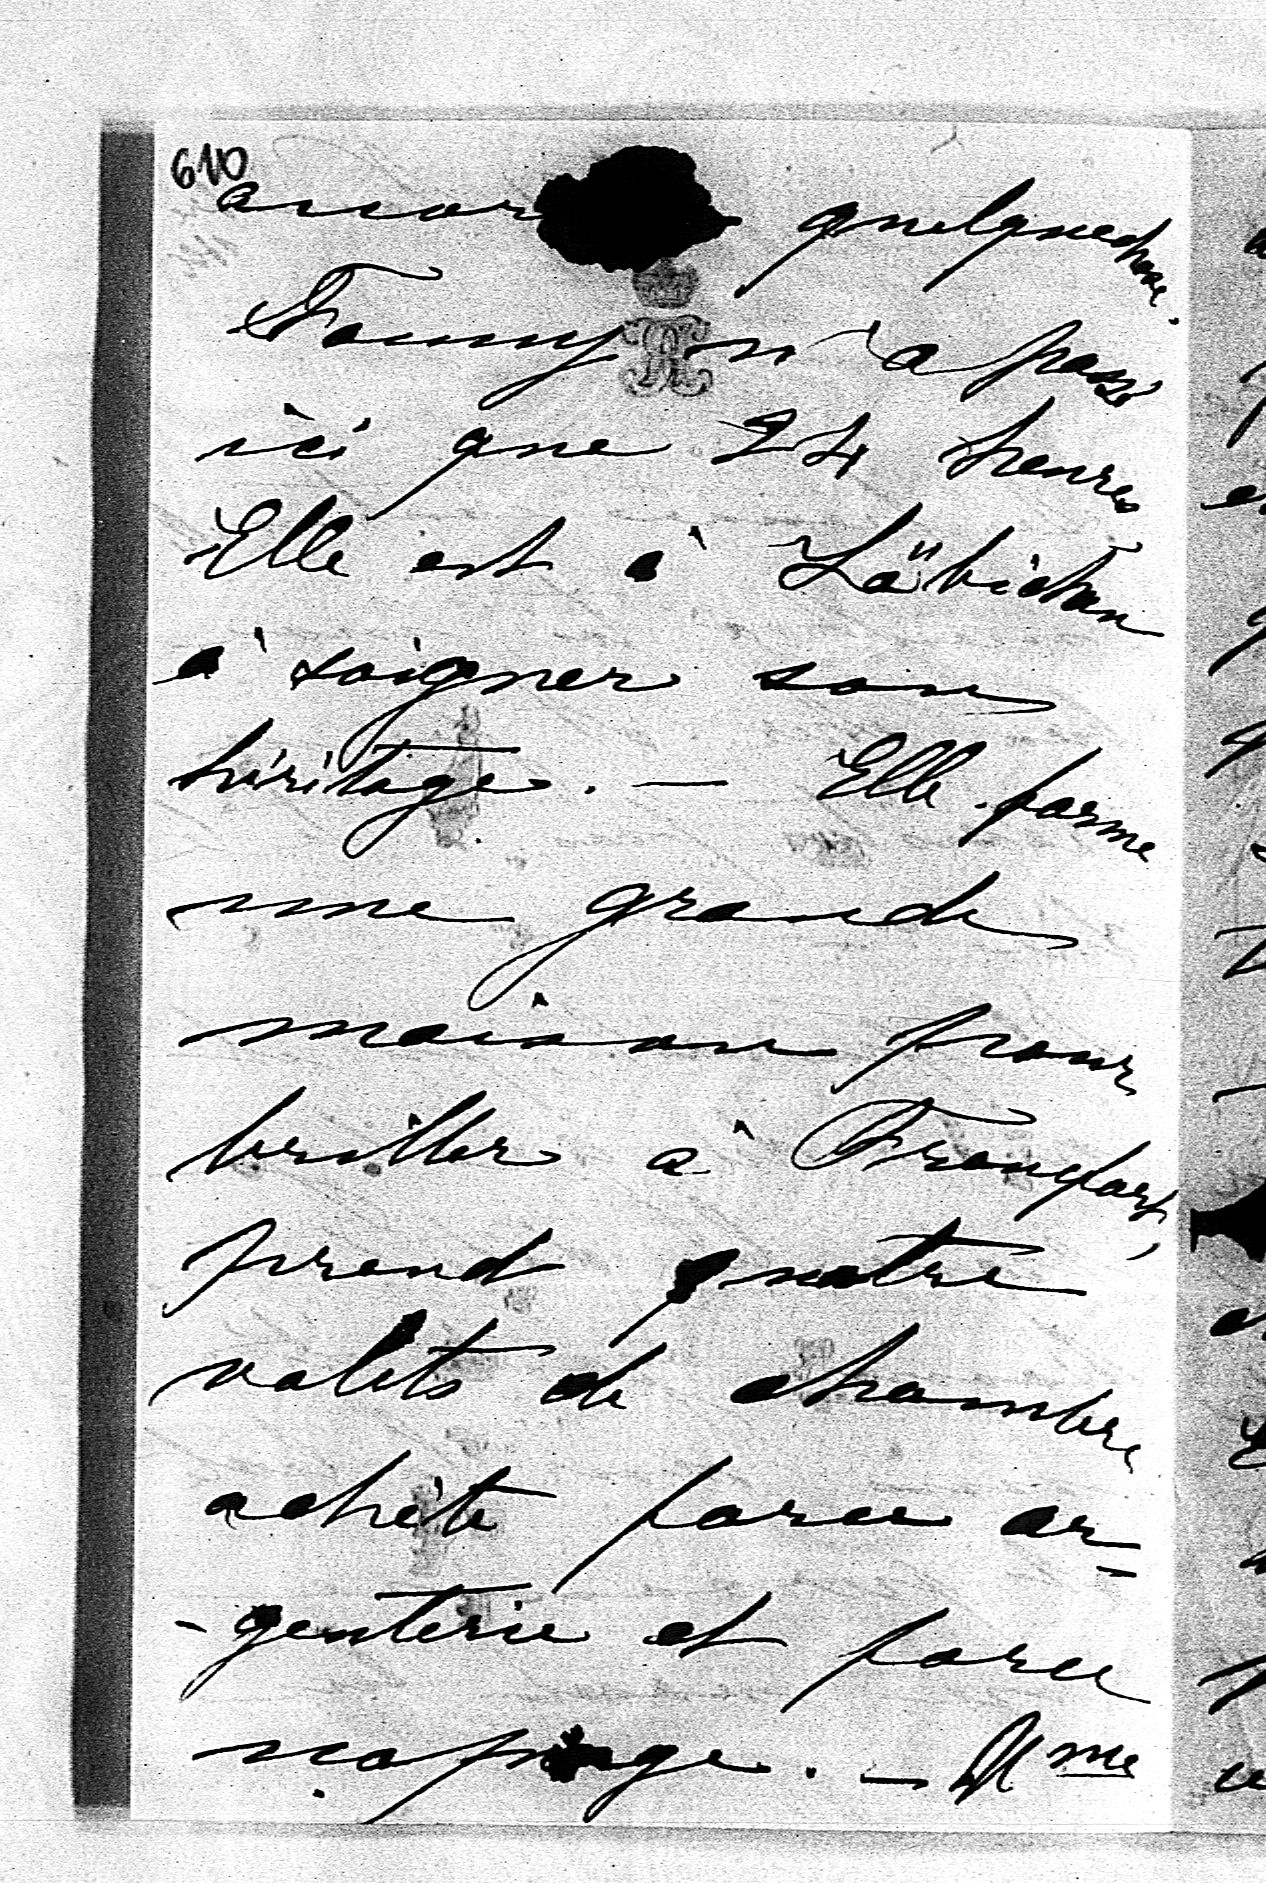 610
encore quelquechose.
Fanny n'a passé
ici que 24 heures
Elle est à Läbichau
à soigner son
héritage. — Elle forme
une grande
maison pour
briller à Francfort,
prend quatre
valets de chambre
achète force ar-
-genterie et force
nappage. — Mme